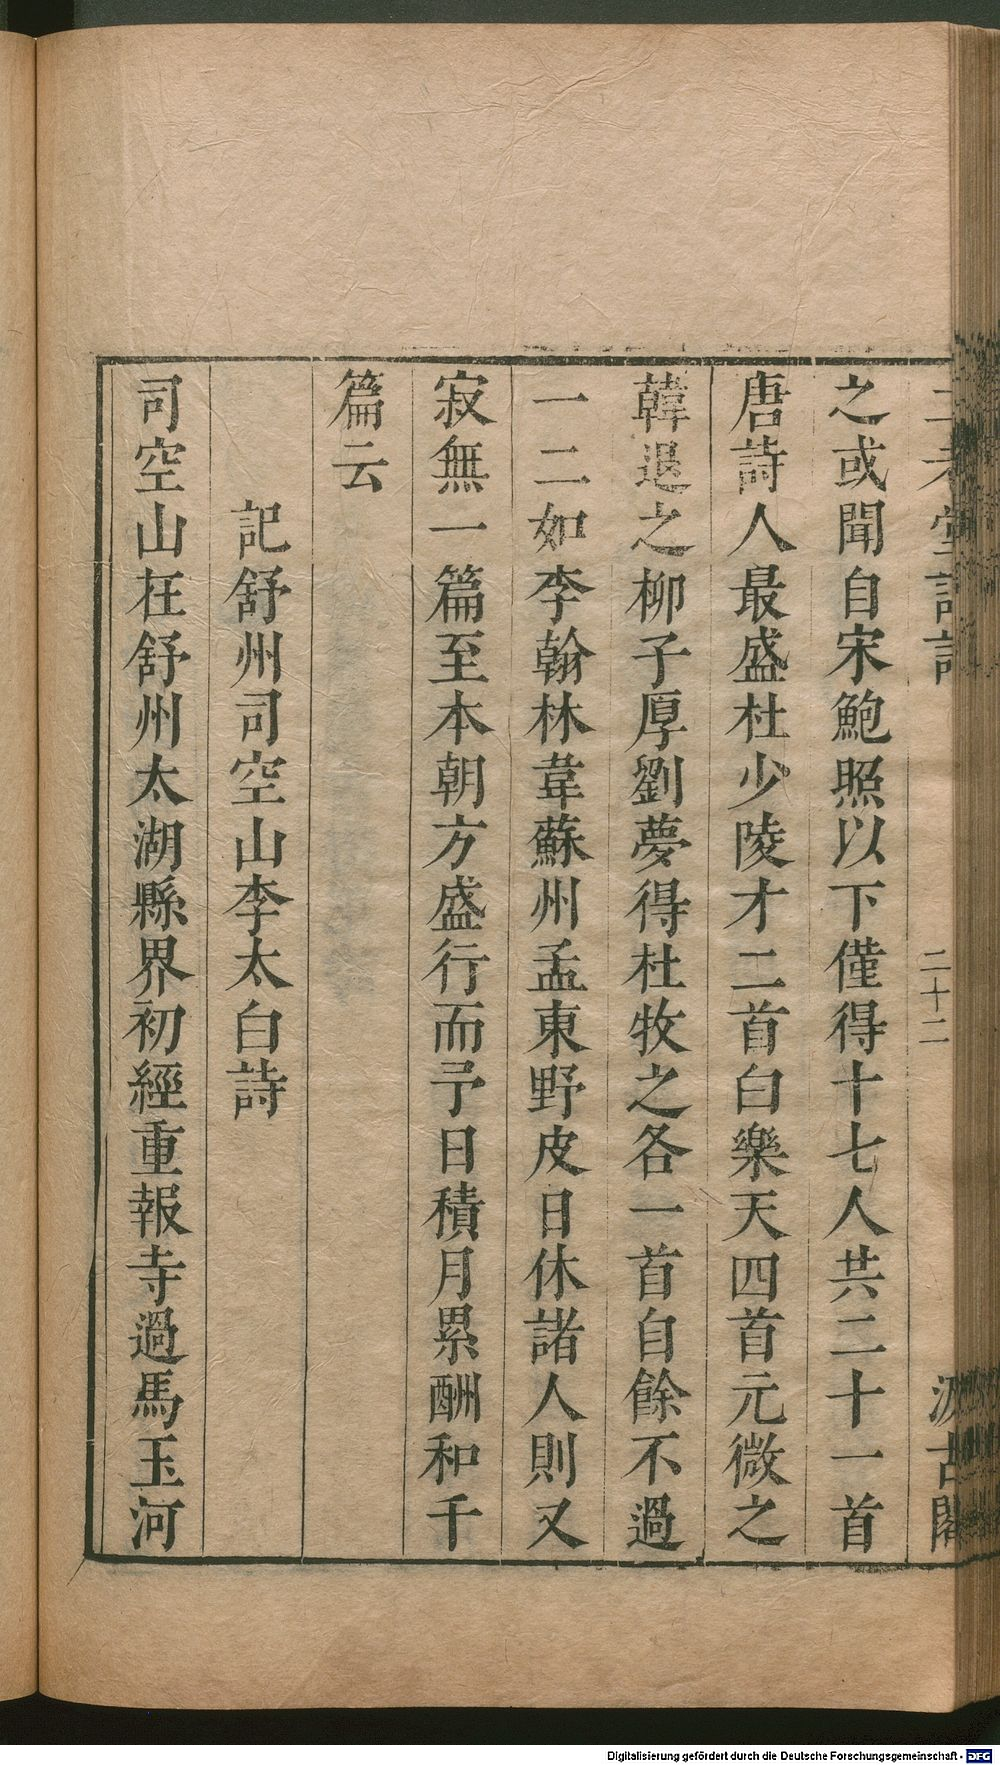 二老堂詩話
二十二
汲古閣
之或聞自宋鮑照以下僅得十七人共二十一首
唐詩人最盛杜少陵才二首白樂天四首元微之
韓退之柳子厚劉夢得杜牧之各一首自餘不過
一二如李翰林韋蘇州孟東野皮日休諸人則又
寂無一篇至本朝方盛行而予日積月累酬和千
篇云
記舒州司空山李太白詩
司空山在舒州太湖縣界初經重報寺過馬玉河
Digitalisierung gefördert durch die Deutsche Forschungsgemeinschaft - DFG